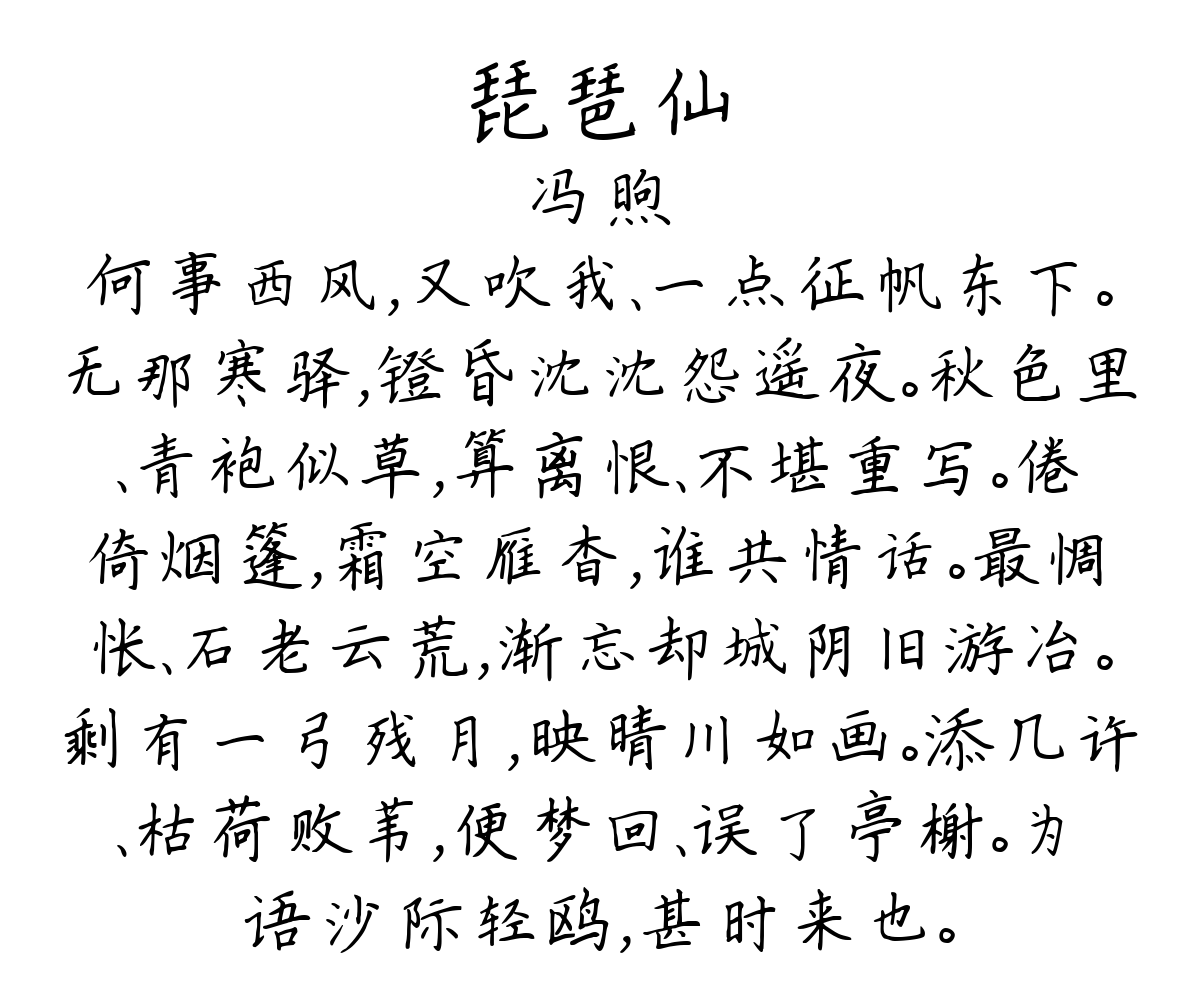 琵琶仙
冯煦
何事西风,又吹我、一点征帆东下。
无那寒驿,镫昏沈沈怨遥夜。秋色里
、青袍似草,算离恨、不堪重写。倦
倚烟篷,霜空雁杳,谁共情话。最惆
怅、石老云荒,渐忘却城阴旧游冶。
剩有一弓残月,映晴川如画。添几许
、枯荷败苇,便梦回、误了亭榭。为
语沙际轻鸥,甚时来也。